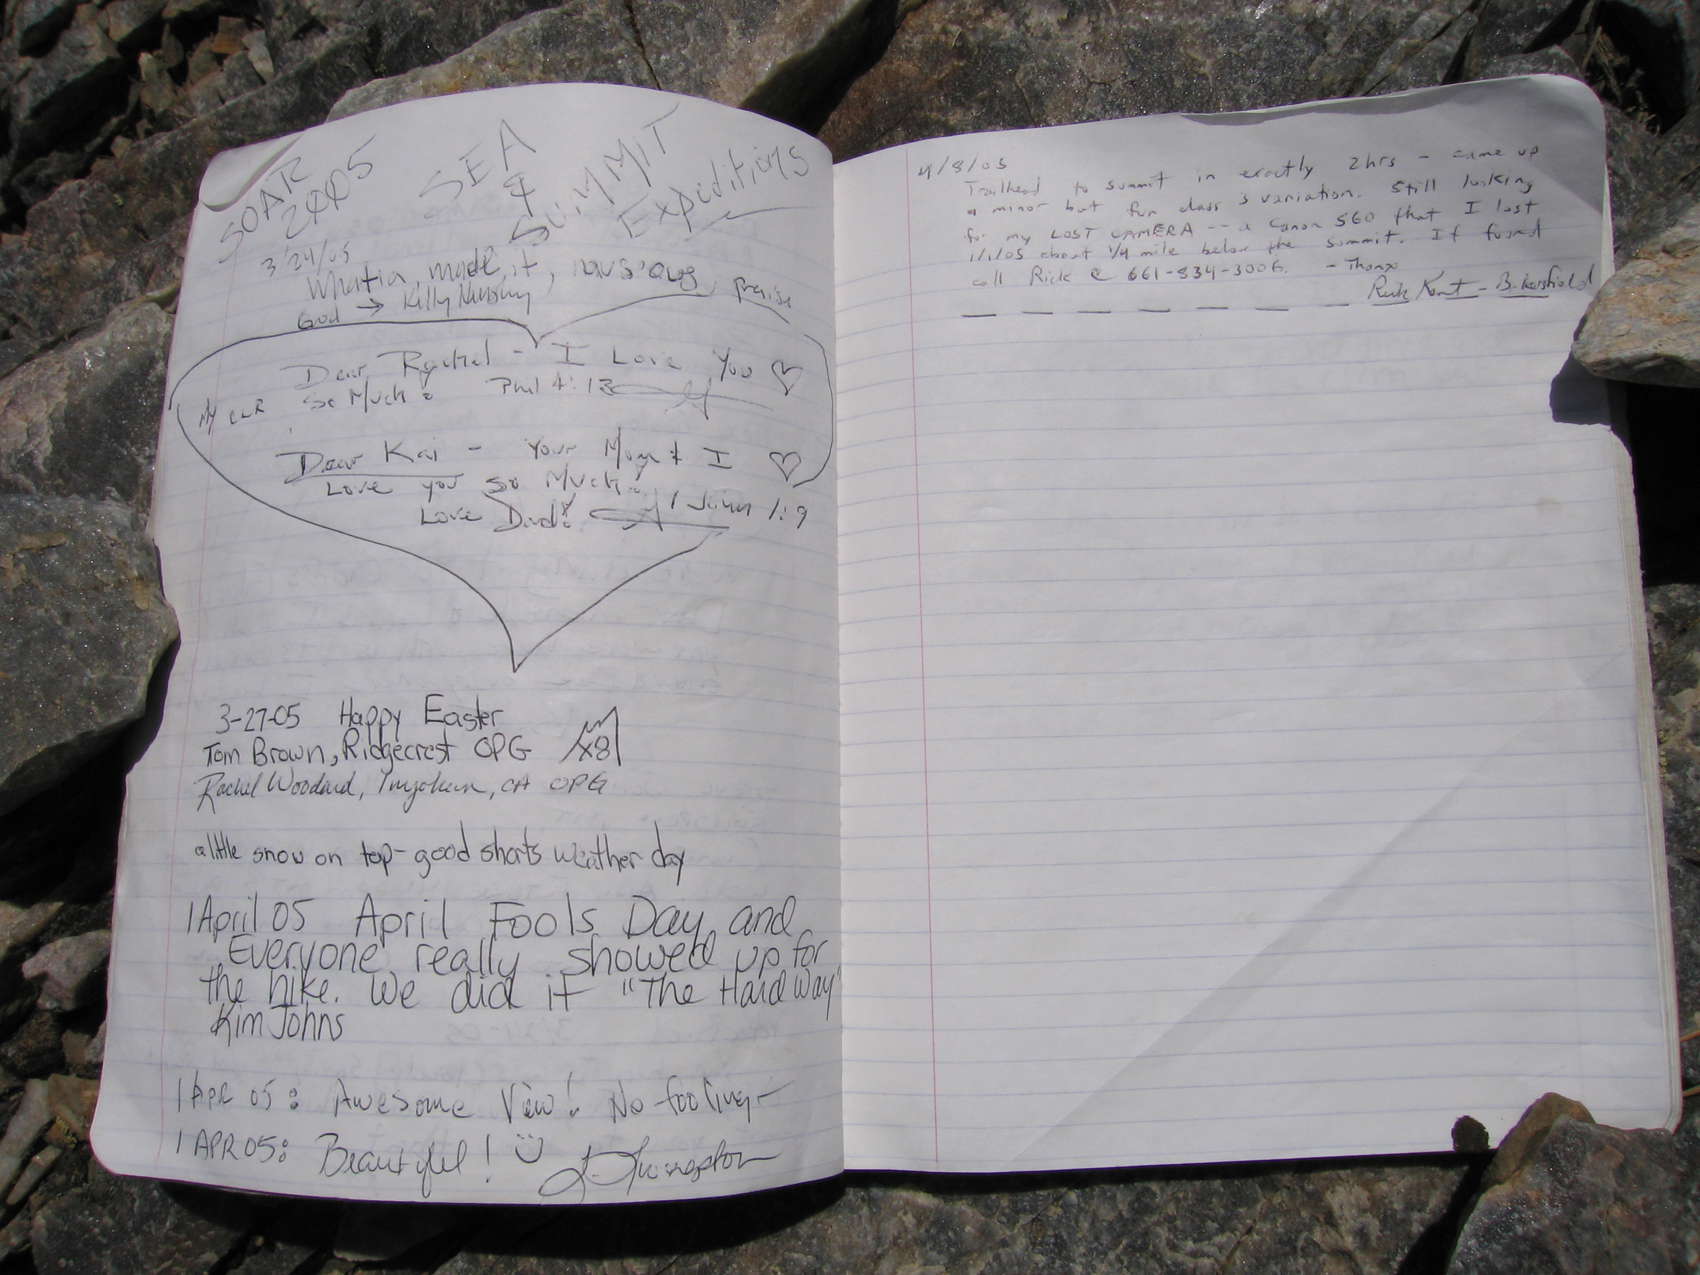 SOAR
2005
SEA
&
SUMMIT
Expeditions
3/24/05
made it, praise
God → Kelly
Dear Rachel - I Love You
So Much! Phil 4:13
My
Dear Kai - Your Mom & I
Love you so Much!
Love Dad! 1 John 1:9
3-27-05 Happy Easter
Tom Brown, Ridgecrest OPG x8
Rachel Woodard, Inyokern, CA OPG
a little snow on top - good shorts weather day
1 April 05 April Fools Day and
Everyone really showed up for
the hike. We did it "The Hard Way"
Kim Johns
1 APR 05: Awesome View! No fooling -
1 APR 05: Beautiful! Livingston
4/8/05
Trailhead to summit in exactly 2hrs - came up
a minor but fun class 3 variation. Still looking
for my LOST CAMERA -- a Canon S60 that I lost
1/1/05 about 1/4 mile below the summit. If found
call Rick @ 661-834-3006. - Thanx
Rick Kent - Bakersfield